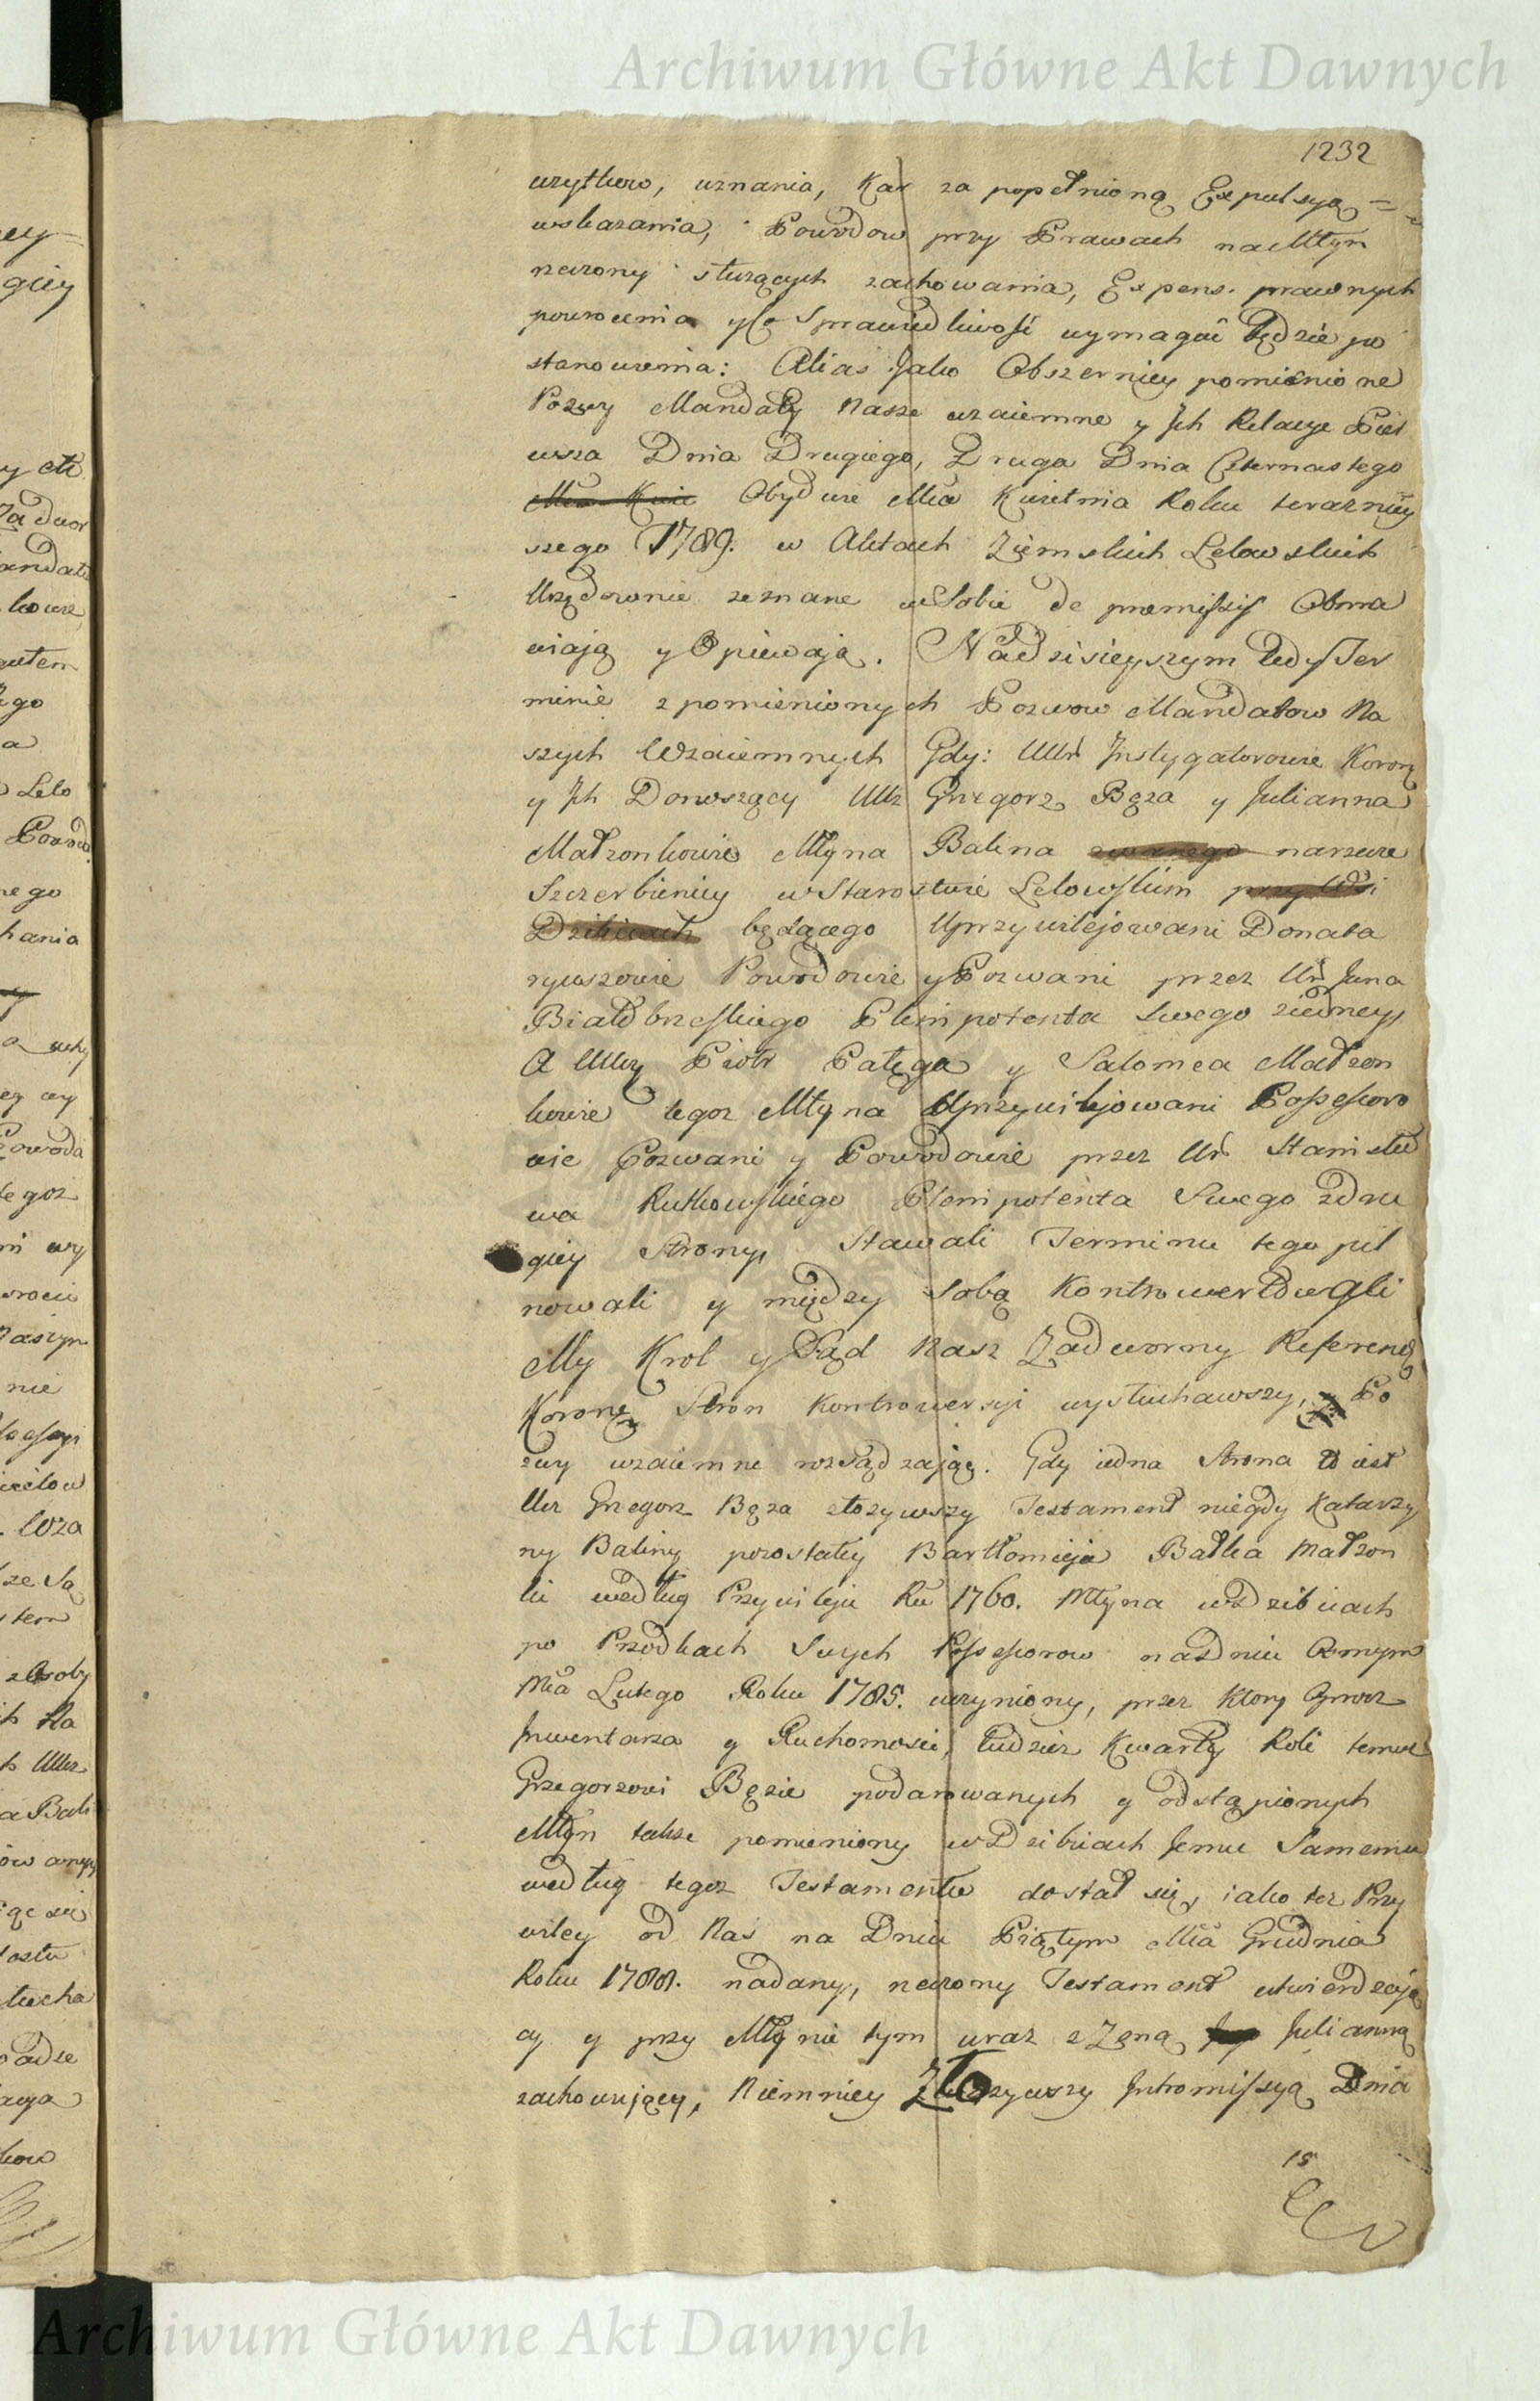 Archiwum Główne Akt Dawnych
1232
wszytkwo, uznania, Kar za popełnioną Expulsyą
wskazania, Powodow przy Prawach na Młyn
rzeczony służących zachowania, Expens. prawnych
powrocenia y co Sprawiedliwość wymagać będzie po
stanowienia: Alias Jako Obszerniey pomienione
Pozwy Mandaty Nasze wzaiemne y Jch Relacye Pier
wsza Dnia Drugiego, Druga Dnia Czternastego
Mca Kwie Obydwie Mca Kwietnia Roku terazniey
szego 1789. w Aktach Ziemskich Lelowskich
Urzędownie zeznane w Sobie de praemissis Obma
wiaią y Opiewaią. Na dzisieyszym tedy Ter
minie z pomienionych Pozwow Mandatow Na
szych Wzaiemnych Gdy: Uur Instygatorowie Koronn
y Jch Donoszący Uucz Grzegorz Bęza y Julianna
Małzonkowie Młyna Balina zwanego nazwie
Szczerbieniey w Starostwie Lelowskim przy Wsi
Dzibicach będącego Uprzywilejowani Donata
ryuszowie Powodowie y Pozwani przez Ur Jana
Białobrzeskiego Plenipotenta Swego z iedney
A Uucz Piotr Pałęga y Salomea Małzon
kowie tegoz Młyna Uprzywilejowani Possessoro
wie Pozwani y Powodowie przez Ur Stanisła
wa Rutkowskiego Plenipotenta Swego z dru
giey Strony, Stawali Terminu tego pil
nowali y między Sobą Kontrowertowali
My Krol y Sąd Nasz Zadworny Referend
Koronny Stron Kontrowersyi wysłuchawszy, Po
zwy wzaiemne rozsądzaiąc. Gdy iedna Strona to iest
Ucz Grzegorz Bęza złożywszy Testament niegdy Katarzy
ny Baliny pozostałey Bartłomieja Balka Małzon
ki według Przywileju Ru 1760. Młyna w Dzibicach
po Przodkach Swych Possessorow na Dniu Osmym
Mca Lutego Roku 1785. uczyniony, przez ktory Oprocz
Inwentarza y Ruchomości, tudzież Kwarty Roli temuż
Grzegorzowi Bęzie podarowanych y odstąpionych
Młyn także pomieniony w Dzibicach Jemu Samemu
według tegoż Testamentu dostał się, iako też Przy
wiley od Nas na Dniu Piątym Mca Grudnia
Roku 1788. nadany, rzeczony Testament utwierdzają
cy y przy Młynie tym wraz z Zoną Julianną
zachowujący, Niemniey Złożywszy Intromissyą Dnia
15
Archiwum Główne Akt Dawnych